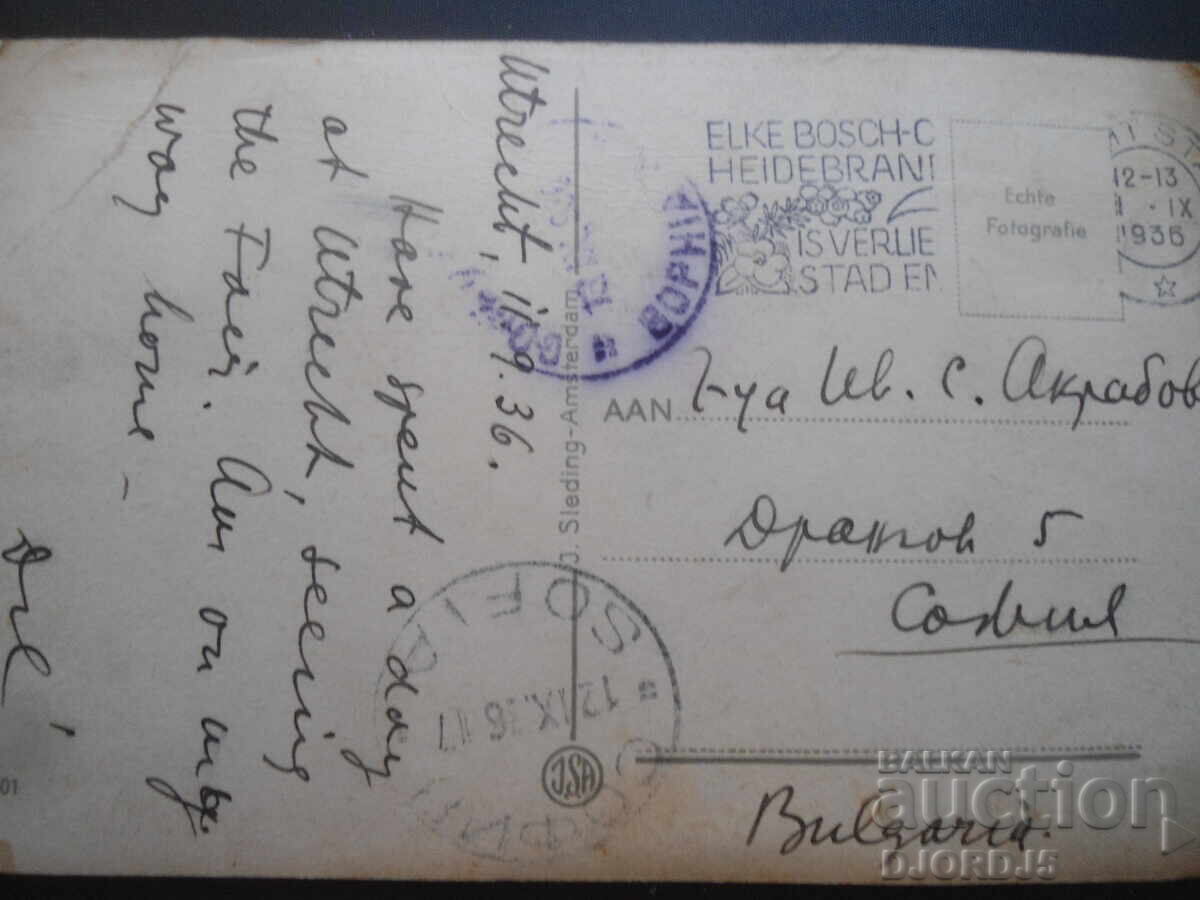 Utrecht, 11.9.36.
Have spent a day
at Utrecht, seeing
the Fair. Am on my
way home –
J. Sleding-Amsterdam
JSA
01
ELKE BOSCH-
HEIDEBRAN
IS VERLIE
STAD EN
Echte
Fotografie
12-13
IX
1936
AAN
Г-ца Ив. С. Акрабов
Драгов 5
София
Bulgaria.
SOFIA
12.IX.36.17
BALKAN
auction
DJORDJ5